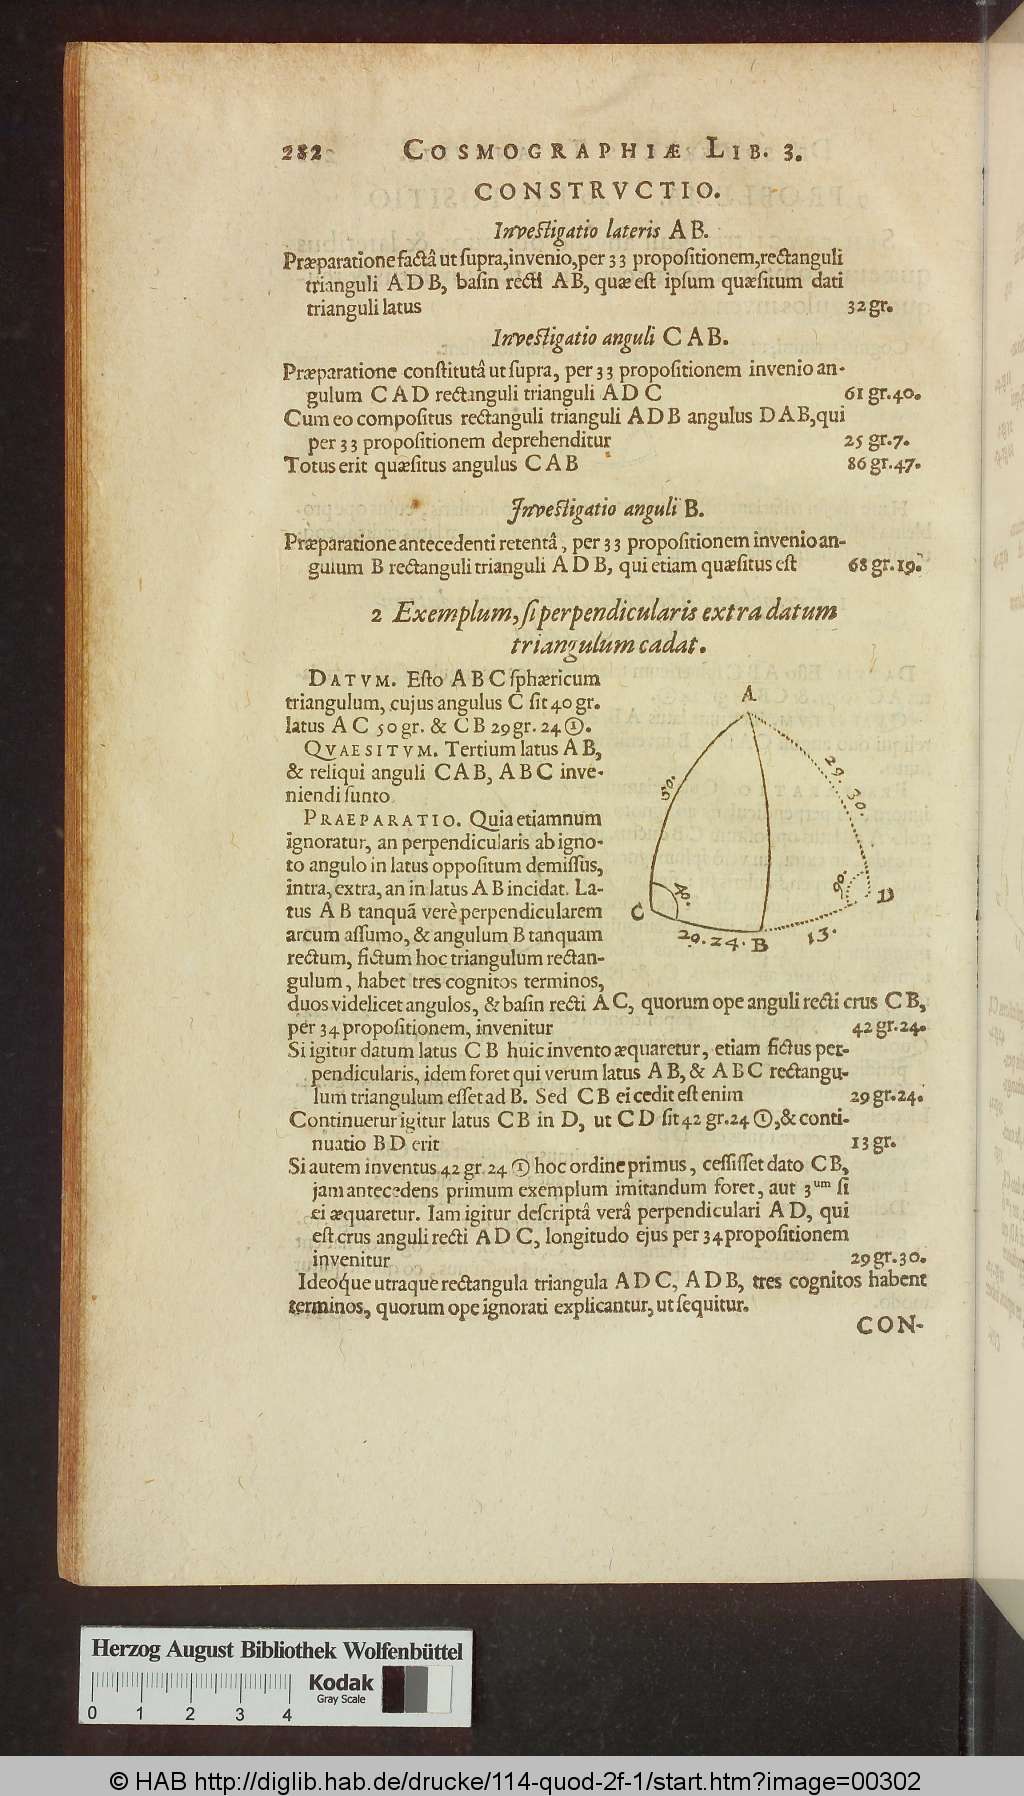 282 COSMOGRAPHIÆ LIB. 3.
CONSTRVCTIO.
Investigatio lateris AB.
Præparatione factâ ut supra, invenio, per 33 propositionem, rectanguli
trianguli ADB, basin recti AB, quæ est ipsum quæsitum dati
trianguli latus 32 gr.
Investigatio anguli CAB.
Præparatione constitutâ ut supra, per 33 propositionem invenio an-
gulum CAD rectanguli trianguli ADC 61 gr. 40.
Cum eo compositus rectanguli trianguli ADB angulus DAB, qui
per 33 propositionem deprehenditur 25 gr. 7.
Totus erit quæsitus angulus CAB 86 gr. 47.
Investigatio anguli B.
Præparatione antecedenti retentâ, per 33 propositionem invenio an-
gulum B rectanguli trianguli ADB, qui etiam quæsitus est 68 gr. 19.
2 Exemplum, si perpendicularis extra datum
triangulum cadat.
DATVM. Esto ABC sphæricum
triangulum, cujus angulus C sit 40 gr.
latus AC 50 gr. & CB 29 gr. 24 ①.
QVAESITVM. Tertium latus AB,
& reliqui anguli CAB, ABC inve-
niendi sunto
PRAEPARATIO. Quia etiamnum
ignoratur, an perpendicularis ab igno-
to angulo in latus oppositum demissus,
intra, extra, an in latus AB incidat. La-
tus AB tanquã verè perpendicularem
arcum assumo, & angulum B tanquam
rectum, fictum hoc triangulum rectan-
gulum, habet tres cognitos terminos,
duos videlicet angulos, & basin recti AC, quorum ope anguli recti crus CB,
per 34 propositionem, invenitur 42 gr. 24.
Si igitur datum latus CB huic invento æquaretur, etiam fictus per-
pendicularis, idem foret qui verum latus AB, & ABC rectangu-
lum triangulum esset ad B. Sed CB ei cedit est enim 29 gr. 24.
Continuerur igitur latus CB in D, ut CD sit 42 gr. 24 ①, & conti-
nuatio BD erit 13 gr.
Si autem inventus 42 gr. 24 ① hoc ordine primus, cessisset dato CB,
jam antecedens primum exemplum imitandum foret, aut 3um si
ei æquaretur. Iam igitur descriptâ verâ perpendiculari AD, qui
est crus anguli recti ADC, longitudo ejus per 34 propositionem
invenitur 29 gr. 30.
Ideoque utraque rectangula triangula ADC, ADB, tres cognitos habent
terminos, quorum ope ignorati explicantur, ut sequitur.
CON-
A
50.
29. 30.
40.
90.
C
D
29. 24. B 13.
Herzog August Bibliothek Wolfenbüttel
Kodak
Gray Scale
0 1 2 3 4
© HAB http://diglib.hab.de/drucke/114-quod-2f-1/start.htm?image=00302